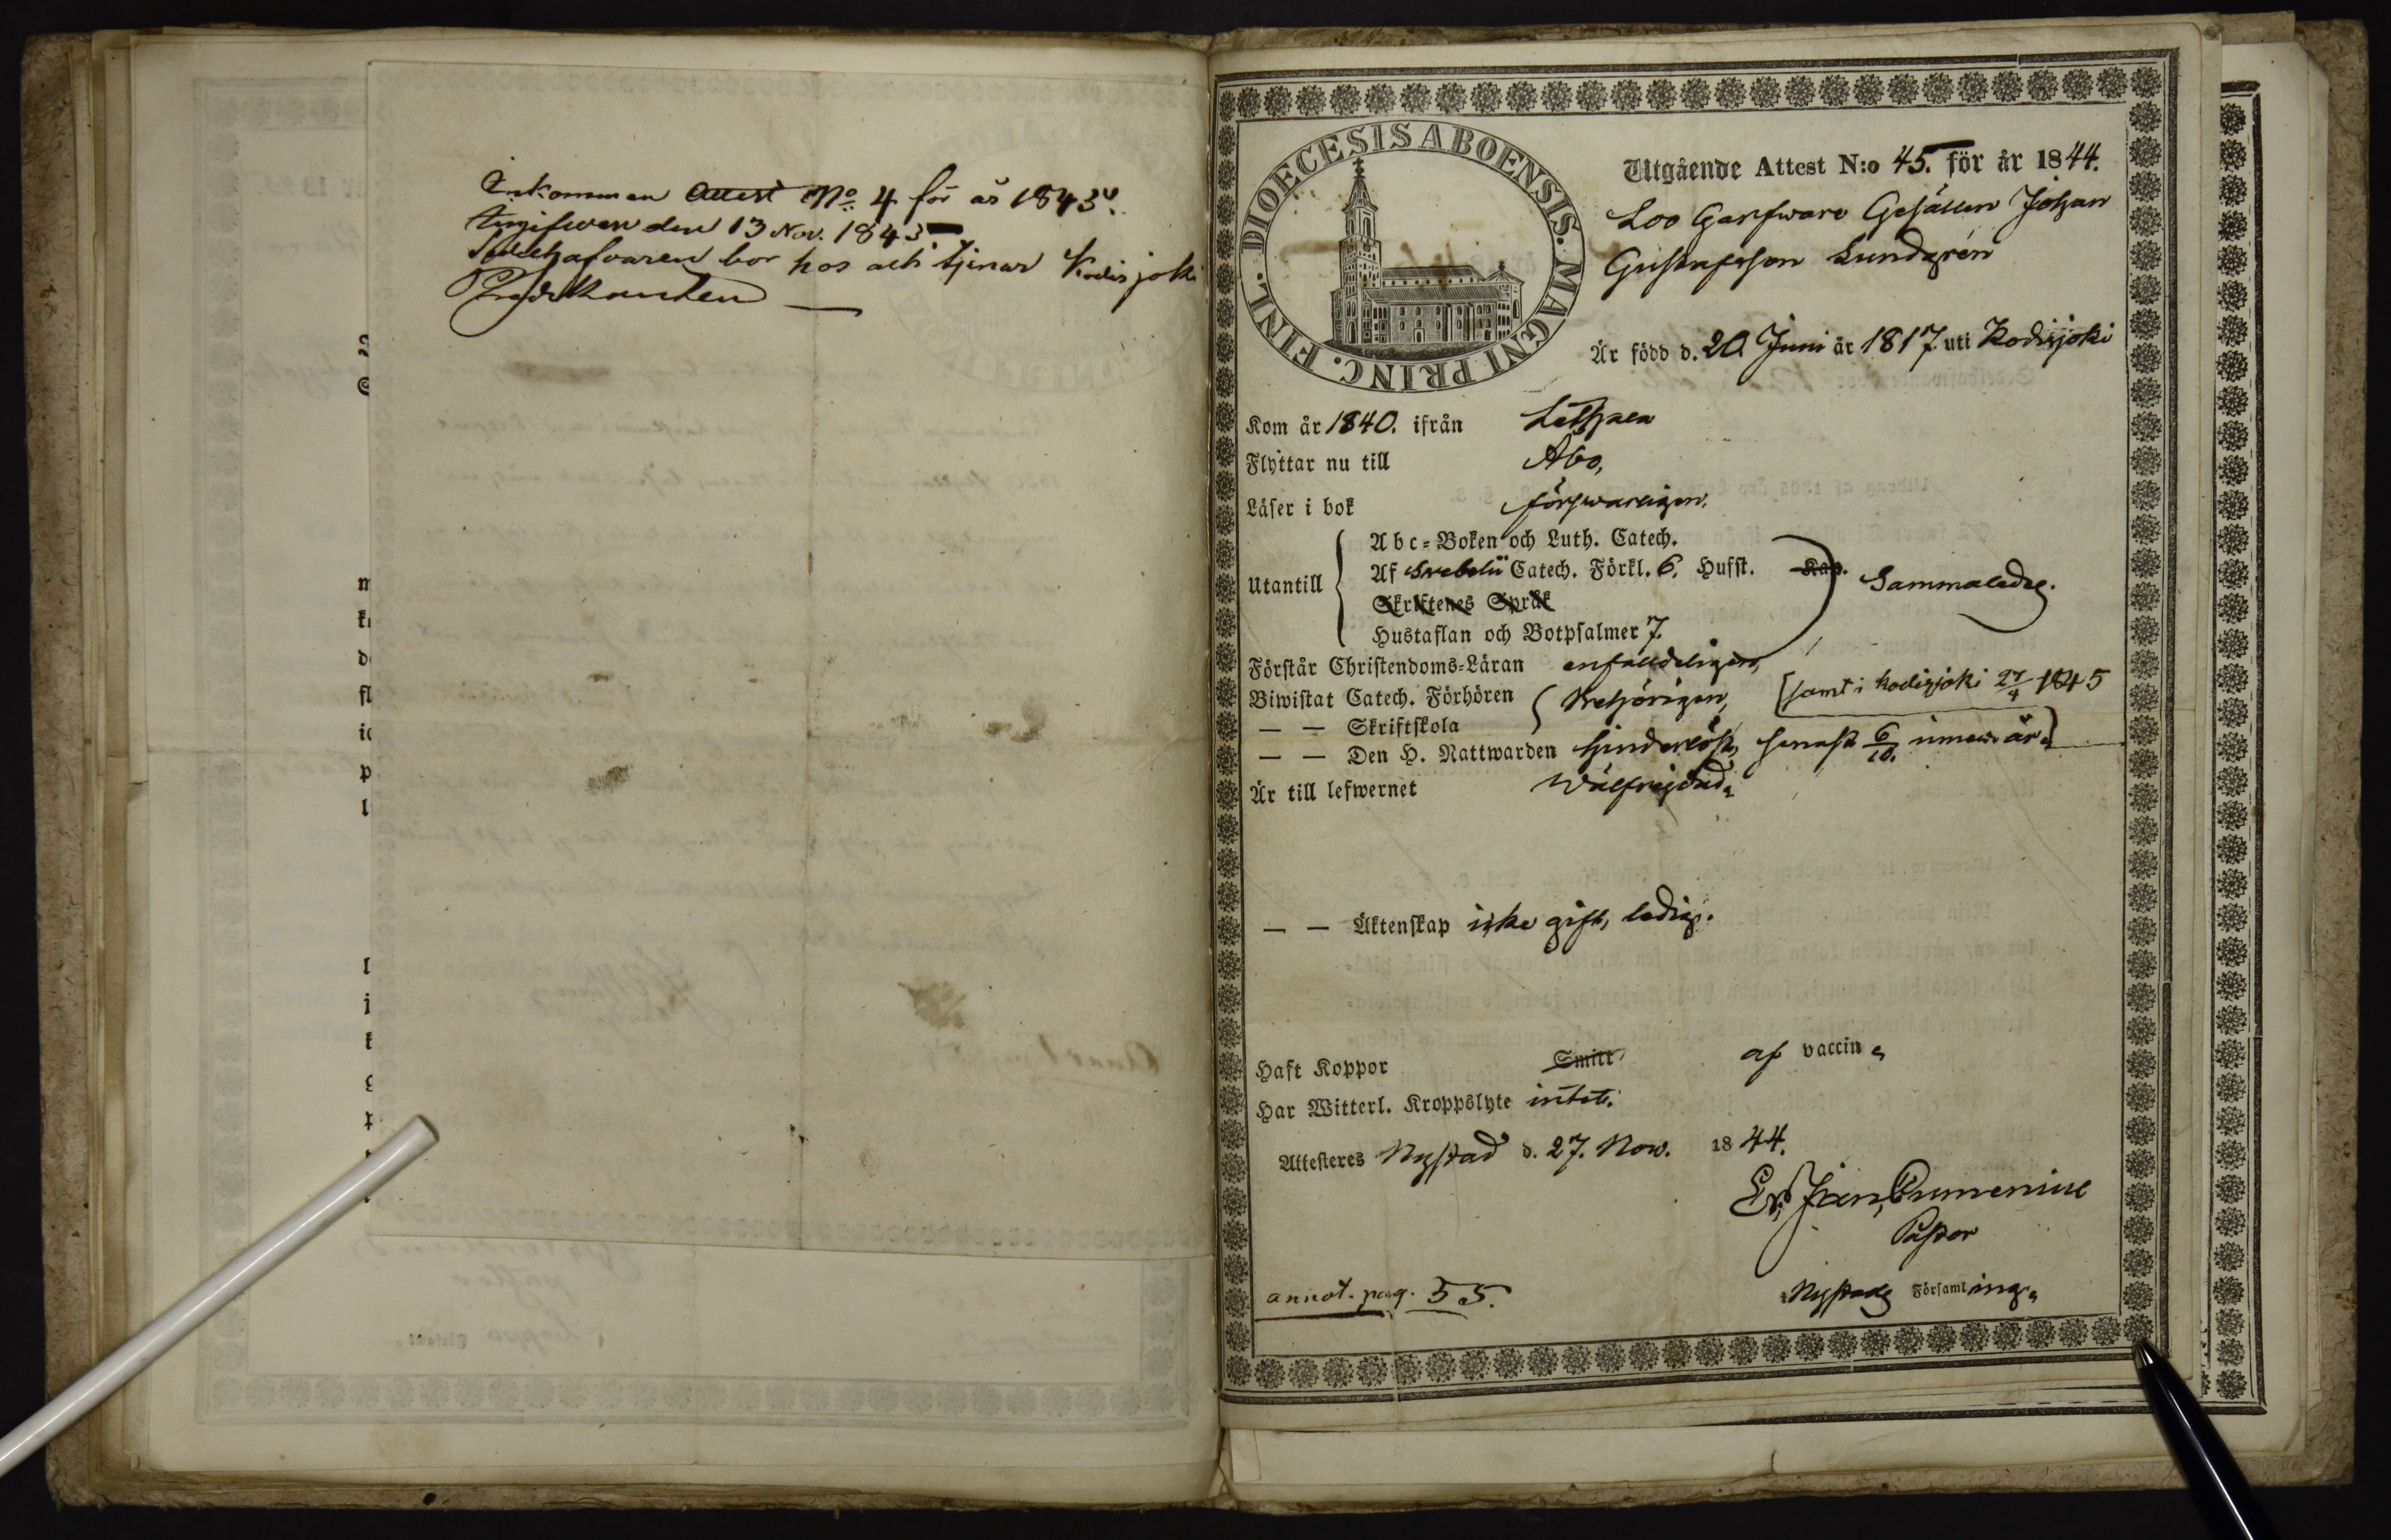 Inkommen Attest No 4 för år 1843.
den 13 Nov. 1843
bor hos och tjenar Kodisjoki
Predikanten
DIOECESIS ABOENSIS. MAGNI PRINC. FINL.
Utgående Attest N:o 45. för år 1844.
Loo Garfware Gesällen Johan
Gustafsson Lundgrén
Är född d. 20 Juni år 1817. uti Kodisjoki
Kom år 1840. ifrån Lethala
Flyttar nu till Åbo,
Läser i bok försvarligen.
Abc-Boken och Luth. Catech.
Utantill Af Svebelii Catech. Förkl. 6. Hufst. Kap. Sammaledes.
Skriftenes Språk
Hustaflan och Botpsalmer 7.
Förstår Christendoms-Läran enfalldeligen,
Biwistat Catech. Förhören behörigen, [samt i Kodisjoki 27/4 1845
— — Skriftskola
— — Den H. Nattwarden hinderlöst, senast 6/10. innew. år.]
Är till lefwernet wälfrejdad.
— — Äktenskap icke gift, ledig.
Haft Koppor Smitt af vaccin.
Har Witterl. Kroppslyte intet.
Attesteres Nystad d. 27. Nov. 1844.
Pastor
annot. pag. 35.
Nystads Församling.